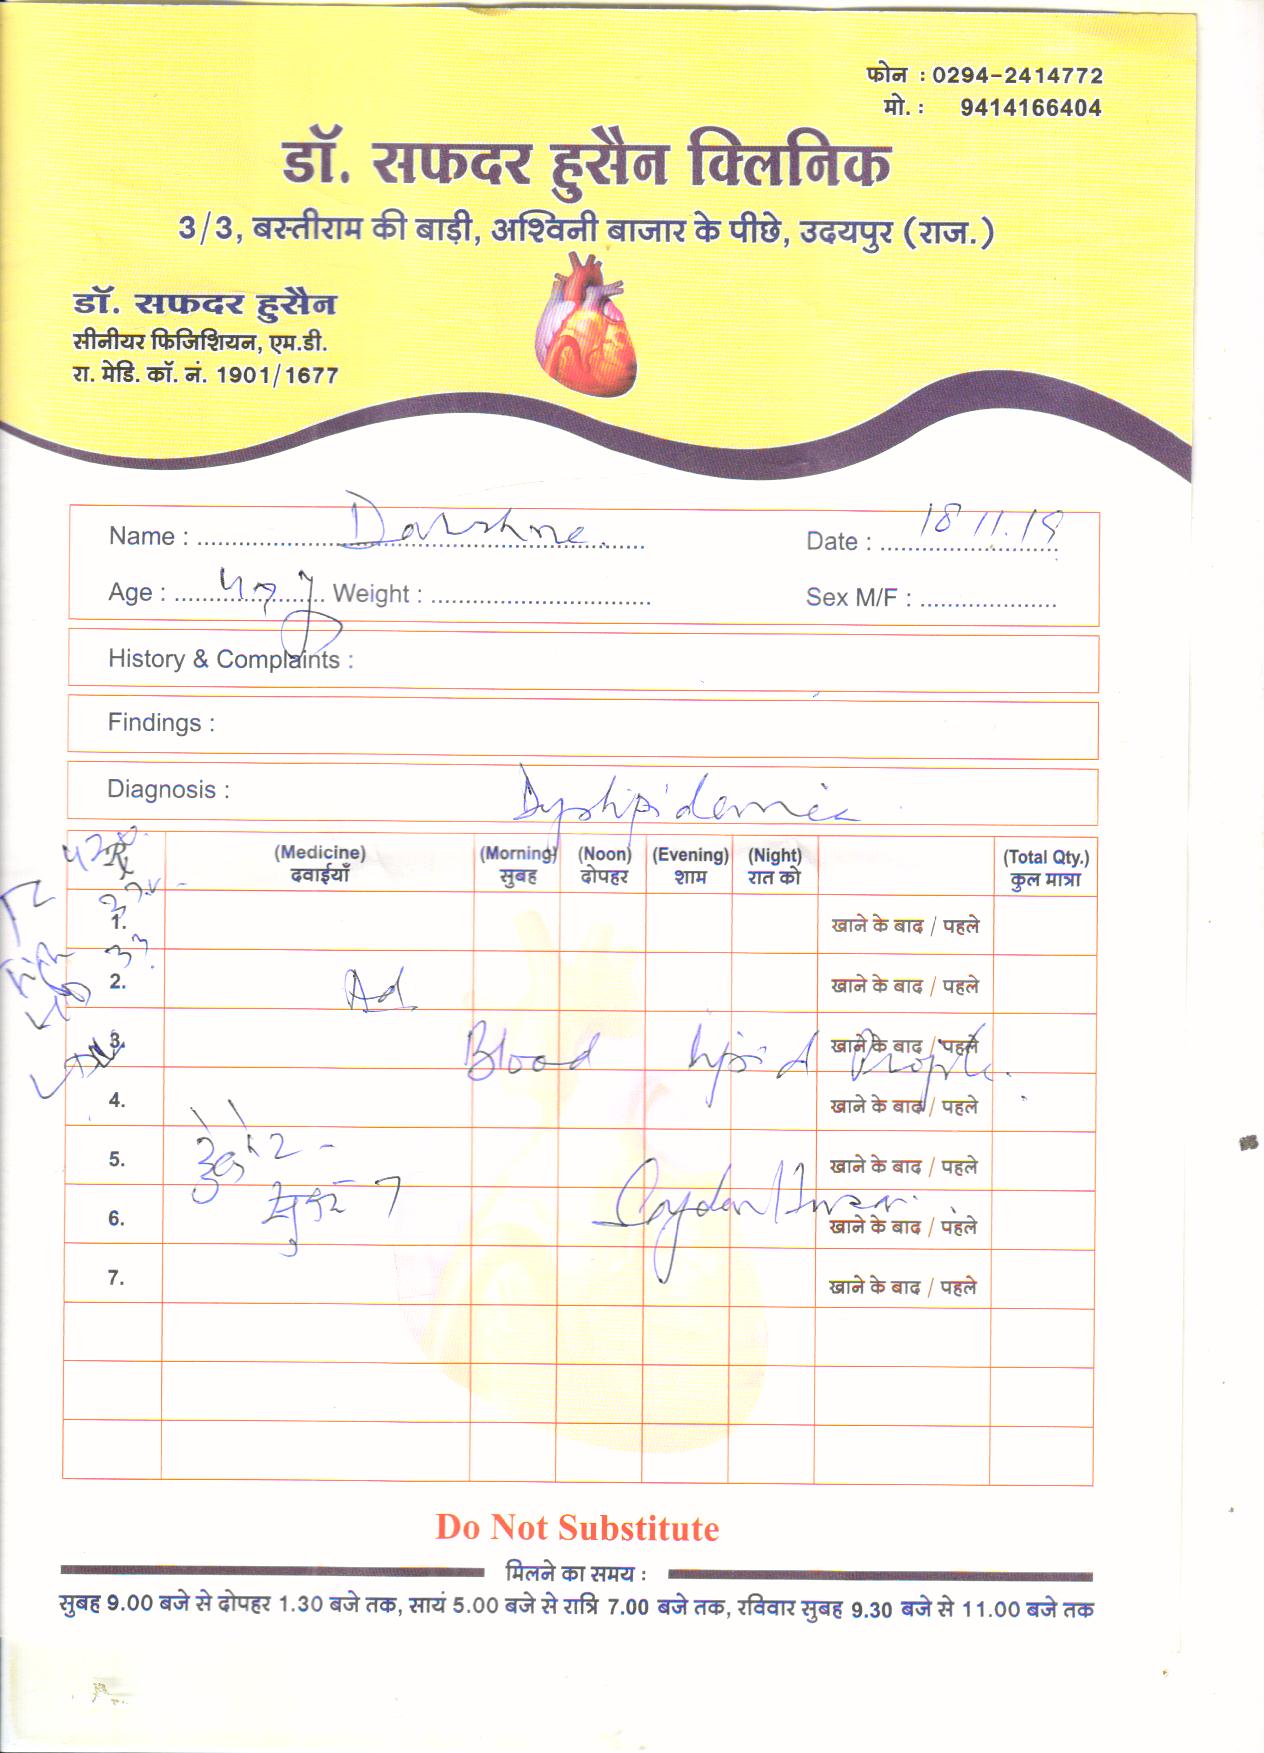 फोन : 0294-2414772
मो. : 9414166404
डॉ. सफदर हुसैन क्लिनिक
3/3, बस्तीराम की बाड़ी, अश्विनी बाजार के पीछे, उदयपुर (राज.)
डॉ. सफदर हुसैन
सीनीयर फिजिशियन, एम.डी.
रा. मेडि. कॉ. नं. 1901/1677
Name : Darshne Date : 18 11.19
Age : Weight : Sex M/F :
History & Complaints :
Findings :
Diagnosis : Dyslipidemia
Rx (Medicine) (Morning) (Noon) (Evening) (Night) (Total Qty.)
दवाईयाँ सुबह दोपहर शाम रात को कुल मात्रा
1. खाने के बाद / पहले
2. Ad खाने के बाद / पहले
3. Blood lipid Profile. खाने के बाद / पहले
4. खाने के बाद / पहले
5. खाने के बाद / पहले
6. खाने के बाद / पहले
7. खाने के बाद / पहले
Do Not Substitute
मिलने का समय :
सुबह 9.00 बजे से दोपहर 1.30 बजे तक, सायं 5.00 बजे से रात्रि 7.00 बजे तक, रविवार सुबह 9.30 बजे से 11.00 बजे तक